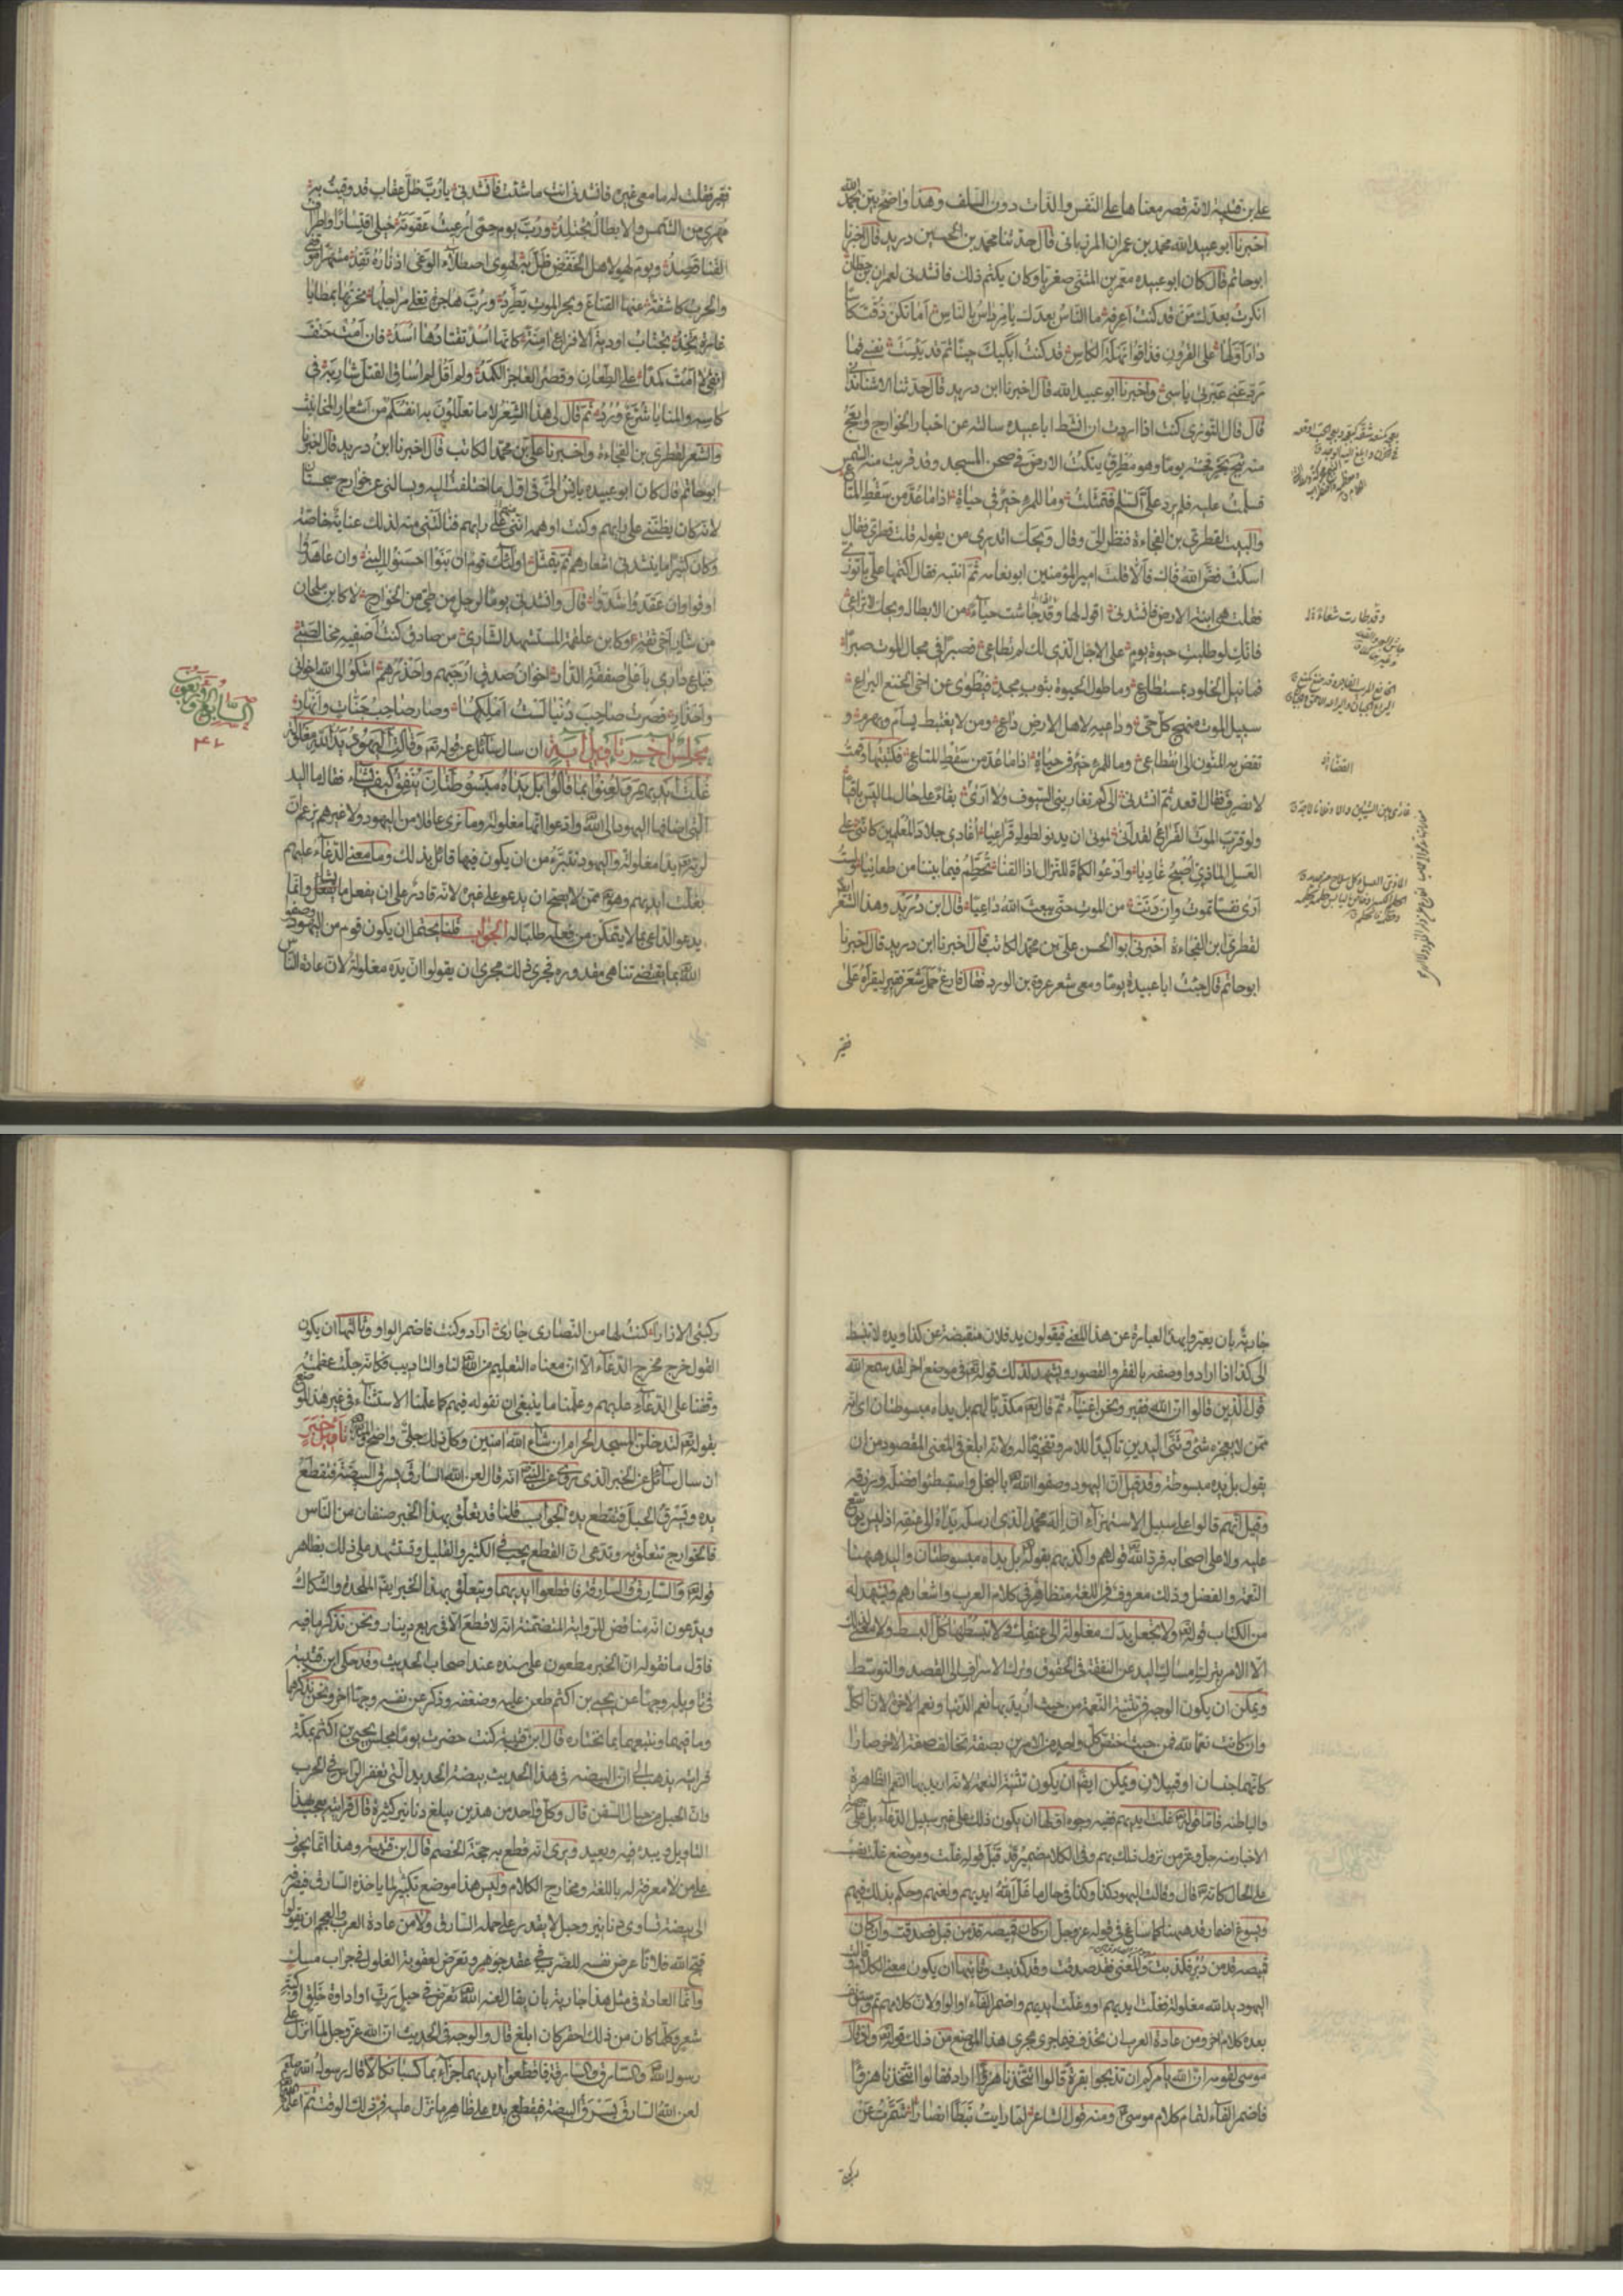 على بن قتيبة لانه قصر معناها على النفس والذات دون السلف وهذا واضح بين بحمد الله
اخبرنا ابو عبيد الله محمد بن عمران المرزبانى قال حدثنا محمد بن الحسين دريد قال اخبرنا
ابو حاتم قال كان ابو عبيده معمر بن المثنى صفريا وكان يكتم ذلك فانشدنى لعمران بن حطان
انكرت بعدك من قد كنت اعرفه ما الناس بعدك يا مرداس بالناس اما تكن ذقت كاسا
دار اولها على القرون فذاقوا نهلة الكاس قد كنت ابكيك حينا ثم قد يئست نفسى فما
رد عنى عبرتى ياسى واخبرنا ابو عبيد الله قال اخبرنا ابن دريد قال حدثنا الاشناندانى
قال قال التوزى كنت اذا اردت ان انشط ابا عبيده سالته عن اخبار الخوارج وابعج
منه ثبج بحر فجئته يوما وهو مطرق ينكت الارض فى صحن المسجد وقد قربت منه الشمس
فسلمت عليه فلم يرد على السلم فتمثلت وما للمرء خير فى حياة اذا ما عد من سقط المتاع
والبيت لقطرى بن الفجاءة فنظر الى وقال ويحك اتدرى من يقوله قلت قطرى فقال
اسكت فض الله فاك فالا قلت امير المؤمنين ابو نعامه ثم انتبه فقال اكتمها على يا توزى
فقلت هى ابنة الارض فانشدنى اقول لها وقد جاشت حياء من الابطال ويحك لا تراعى
فانك لو طلبت حيوة يوم على الاجل الذى لك لم تطاعى فصبرا فى مجال الموت صبرا
فما نيل الخلود بمستطاع وما طول الحيوة بثوب مجد فيطوى عن اخى الخنع اليراع
سبيل الموت منهج كل حى وداعيه لاهل الارض داع ومن لا يغتبط يسأم ويهرم و
تفض به المنون الى انقطاع وما للمرء خير فى حياة اذا ما عد من سقط المتاع فكتبتها وقمت
لانصرف فقال اقعد ثم انشدنى الى كم تغارينى السيوف ولا ارى بقاء على حال لما ليس باقيا
ولو قرب الموت القراع لقد انى لموتى ان يدنو لطول قراعيا اغادى جلاد المعلمين كاننى على
العسل الماذى اصبح غاديا وادعو الكماة للنزال اذا القنا تحطم فيما بيننا من طعانيا ولست
ارى نفسا تموت وان دنت من الموت حتى يبعث الله داعيا قال ابن دريد وهذا الشعر ايضا
لقطرى بن الفجاءة اخبرنى ابو الحسن على بن محمد الكاتب قال اخبرنا ابن دريد قال اخبرنا
ابو حاتم قال جئت ابا عبيدة يوما ومعى شعر عروة بن الورد فقال فارغ حمل شعر فقير ليقرأه على
فقير
وقد طارت شعاعا
القضاء
فقير فقلت له ما معى غيره فانشدنى انت ما شئت فانشدنى يا رب ظل عقاب قد وقيت به
مهرى من الشمس والابطال تجتلد ورب يوم حمى ارعيت عقوته خيلى اقتسارا واطراف
القنا قصد ويوم لهو لاهل الخفض ظل به لهوى اصطلاء الوغى اذ ناره تقد مشهرا موقفى
والحرب كاشفة عنها القناع وبحر الموت يطرد ورب هاجرة تغلى مراجلها نحرتها بمطايا
غارة تخد تجتاب اودية الافزاع امنة كانها اسد تقتادها اسد فان امت حتف
انفى لا امت كمدا على الطعان وقصر العاجز الكمد ولم اقل لم اساق القتل شاربه فى
كاسه والمنايا شرع ورد ثم قال لى هذا الشعر لا ما تعللون به انفسكم من اشعار المخانيث
والشعر لقطرى بن الفجاءة واخبرنا على بن محمد الكاتب قال اخبرنا ابن دريد قال اخبرنا
ابو حاتم قال كان ابو عبيده يانس الى فى اول ما اختلفت اليه ويسالنى عن خوارج سجستان
لانه كان يظننى على رايهم وكنت اوهمه اننى على رايهم فنالتنى منه لذلك عناية خاصة
وكان كثيرا ما ينشدنى اشعارهم ثم يتمثل اولئك قوم ان بنوا احسنوا البنى وان عاهدوا
اوفوا وان عقدوا شدوا قال وانشدنى يوما لرجل من طى من الخوارج لا كابن ملحان
من شار اخى ثقة او كابن علقمة المستشهد الشارى من صادق كنت اصفيه مخالصتى
فباع دارى باعلى صفقة الدار اخوان صدق ارجيهم واحذرهم اشكو الى الله اخوانى
واحذارى فصرت صاحب دنيا لست املكها وصار صاحب جنات وانهار
مجلس اخر تاويل اية ان سال سائل عن قوله تعم وقالت اليهود يد الله مغلولة
غلت ايديهم ولعنوا بما قالوا بل يداه مبسوطتان ينفق كيف يشاء فقال ما اليد
التى اضافها اليهود الى الله وادعوا انها مغلولة وما نرى عاقلا من اليهود ولا غيرهم يزعم ان
لربه يدا مغلولة واليهود تتبرء من ان يكون فيها قائل بذلك وما معنى الدعاء عليهم
بغلت ايديهم وهو ممن لا يصح ان يدعو على غيره لانه قادر على ان يفعل ما يشاء وانما
يدعو الداعى بما لا يتمكن من فعله طلبا له الجواب قلنا يحتمل ان يكون قوم من اليهود وصفوا
الله بما يقتضى تناهى مقدوره فجرى ذلك مجرى ان يقولوا ان يده مغلولة لان عادة الناس
السابع والاربعون
٤٧
جارية بان يعبروا بهذا العبارة عن هذا المعنى فيقولون يد فلان منقبضة عن كذا ويده لا تنبسط
الى كذا اذا ارادوا وصفه بالفقر والقصور ويشهد لذلك قوله تعم فى موضع اخر لقد سمع الله
قول الذين قالوا ان الله فقير ونحن اغنياء ثم قال تعم مكذبا لهم بل يداه مبسوطتان اى انه
ممن لا يعجزه شئ وثنى اليدين تاكيدا للامر وتفخيما له ولانه ابلغ فى المعنى المقصود من ان
يقول بل يده مبسوطة وقد قيل ان اليهود وصفوا الله بالبخل واستبطئوا فضله ورزقه
وقيل انهم قالوا على سبيل الاستهزاء ان اله محمد الذى ارسله يداه الى عنقه اذ ليس يوسع
عليه ولا على اصحابه فرد الله قولهم واكذبهم بقوله بل يداه مبسوطتان واليد هيهنا
النعمة والفضل وذلك معروف فى اللغة متظاهر فى كلام العرب واشعارهم ويشهد له
من الكتاب قوله ولا تجعل يدك مغلولة الى عنقك ولا تبسطها كل البسط ولا معنى لذلك
الا الامر بترك امساك اليد عن النفقة فى الحقوق وترك الاسراف الى القصد والتوسط
ويمكن ان يكون الوجه فى تثنية النعمة من حيث اريد بها نعم الدنيا ونعم الاخرة لان الكل
وان كانت نعما لله فمن حيث اختص كل واحد من الامرين بصفة تخالف صفة الاخر صارا
كانهما جنسان او قبيلان ويمكن ايضا ان يكون تثنية النعمة لانه اريد بها النعم الظاهرة
والباطنه فاما قوله غلت ايديهم ففيه وجوه اولها ان يكون ذلك على غير سبيل الدعاء بل على جهة
الاخبار منه جل وعز من نزول ذلك بهم وفى الكلام ضمير قد قبل قوله غلت وموضع غلت نصب
على الحال كانه قال وقالت اليهود كذا وكذا فى حال ما غل الله ايديهم ولعنهم وحكم بذلك فيهم
ويسوغ اضمار قد هيهنا كما ساغ فى قوله عز وجل ان كان قميصه قد من قبل فصدقت وان كان
قميصه قد من دبر فكذبت والمعنى فقد صدقت وقد كذبت وثانيها ان يكون معنى الكلام وقالت
اليهود يد الله مغلولة فغلت ايديهم او وغلت ايديهم واضمر الفاء او الواو لان كلامهم تم واستؤنف
بعده كلام اخر ومن عادة العرب ان تحذف فيما جرى مجرى هذا الموضع من ذلك قوله واذ قال
موسى لقومه ان الله يامركم ان تذبحوا بقرة قالوا اتتخذنا هزوا اراد فقالوا اتتخذنا هزوا
فاضمر الفاء لتمام كلام موسى ومنه قول الشاعر لما رايت نبطا انصارا شمرت عن
ركبتى
ركبتى الازارا كنت لها من النصارى جارا اراد وكنت فاضمر الواو وثالثها ان يكون
القول خرج مخرج الدعاء الا ان معناه التعليم من الله لنا والتاديب فكانه جلت عظمته
وقفنا على الدعاء عليهم وعلمنا ما ينبغى ان نقوله فيهم كما علمنا الاستثناء فى غير هذا الموضع
بقوله لتدخلن المسجد الحرام ان شاء الله امنين وكل ذلك جلى واضح تاويل خبر
ان سال سائل عن الخبر الذى يروى عن النبى انه قال لعن الله السارق يسرق البيضة فتقطع
يده ويسرق الحبل فتقطع يده الجواب قلنا قد تعلق بهذا الخبر صنفان من الناس
فالخوارج تتعلق به وتدعى ان القطع يجب فى الكثير والقليل وتستشهد على ذلك بظاهر
قوله والسارق والسارقة فاقطعوا ايديهما ويتعلق بهذا الخبر ايضا الملحدة والشكاك
ويدعون انه مناقض للرواية المتضمنة انه لا قطع الا فى ربع دينار ونحن نذكر ما فيه
فاول ما نقوله ان الخبر مطعون على سنده عند اصحاب الحديث وقد حكى ابن قتيبة
فى تاويله وجها عن يحيى بن اكثم طعن عليه وضعفه وذكر عن نفسه وجها اخر ونحن نذكرهما
وما فيهما ونتبعهما بما نختاره قال ابن قتيبة كنت حضرت يوما مجلس يحيى بن اكثم بمكة
فرايته يذهب الى ان البيضة فى هذا الحديث بيضة الحديد التى تغفر الراس فى الحرب
وان الحبل من حبال السفن قال وكل واحد من هذين يبلغ دنانير كثيرة قال فرايته يعجب بهذا
التاويل ويبدء فيه ويعيد ويرى انه قطع به حجة الخصم قال ابن قتيبة وهذا انما يجوز
على من لا معرفة له باللغة ومخارج الكلام وليس هذا موضع تكثير لما ياخذه السارق فيصرفه
الى بيضة تساوى دنانير وحبل لا يقدر على حمله السارق ولا من عادة العرب والعجم ان يقولوا
قبح الله فلانا عرض نفسه للضرب فى عقد جوهر وتعرض لعقوبة الغلول فى جراب مسك
وانما العادة فى مثل هذا جارية بان يقال لعنه الله تعرض فى حبل رث او اداوة خلق او كبة
شعر وكلما كان من ذلك احقر كان ابلغ قال والوجه فى الحديث ان الله عز وجل لما انزل على
رسوله والسارق والسارقة فاقطعوا ايديهما جزاء بما كسبا نكالا قال رسول الله
لعن الله السارق يسرق البيضة فتقطع يده على ظاهر ما نزل عليه فى ذلك الوقت ثم اعلمه الله